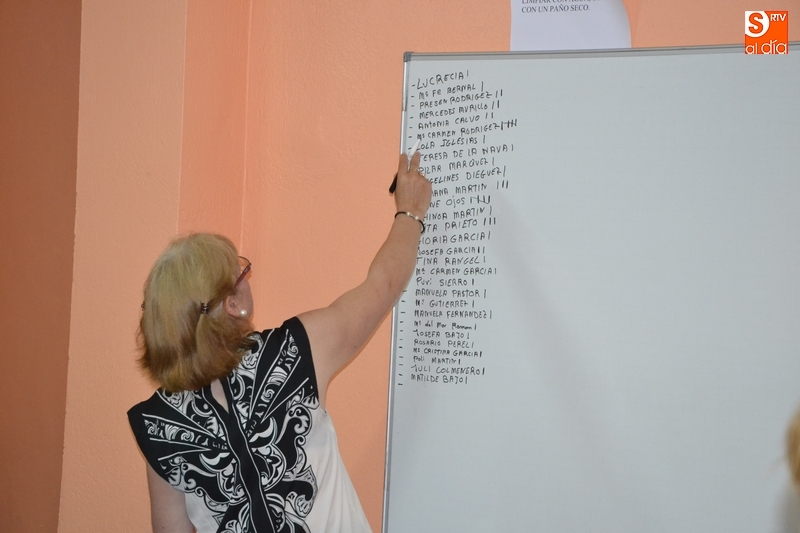 CON UN PAÑO SECO
S RTV
al día
- LUCRECIA |
- Mª FE BERNAL |
- PRESEN RODRIGEZ ||
- MERCEDES MURILLO ||
- ANTONIA CALVO ||
- Mª CARMEN RODRIGEZ |||||
- LOLA IGLESIAS |
TERESA DE LA NAVA |
PILAR MARQUEZ |
ANGELINES DIEGUEZ |
MARTIN |||
OJOS |||||
AINOA MARTIN |
PRIETO |||
GLORIA GARCIA |
JOSEFA GARCIA ||
TINA RANGEL |
Mª CARMEN GARCIA |
PURI SIERRO |
MANUELA PASTOR |
Mª GUTIERREZ |
MANUELA FERNANDEZ |
Mª del Mar |
JOSEFA BAJO |
ROSARIO PEREL |
Mª CRISTINA GARCIA |
POLI MARTIN |
JULI COLMENERO |
MATILDE BAJO |